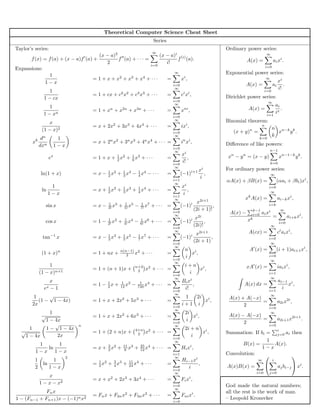 Theoretical Computer Science Cheat Sheet
Series
Taylor's series:
f(x) = f(a) + (x − a)f′(a) + (x − a)²/2 f″(a) + ··· = ∑_{i=0}^{∞} (x − a)^i/i! f^{(i)}(a).
Expansions:
1/(1 − x) = 1 + x + x² + x³ + x⁴ + ··· = ∑_{i=0}^{∞} x^i,
1/(1 − cx) = 1 + cx + c²x² + c³x³ + ··· = ∑_{i=0}^{∞} c^i x^i,
1/(1 − x^n) = 1 + x^n + x^{2n} + x^{3n} + ··· = ∑_{i=0}^{∞} x^{ni},
x/(1 − x)² = x + 2x² + 3x³ + 4x⁴ + ··· = ∑_{i=0}^{∞} ix^i,
x^k d^n/dx^n (1/(1 − x)) = x + 2^n x² + 3^n x³ + 4^n x⁴ + ··· = ∑_{i=0}^{∞} i^n x^i,
e^x = 1 + x + ½x² + ⅙x³ + ··· = ∑_{i=0}^{∞} x^i/i!,
ln(1 + x) = x − ½x² + ⅓x³ − ¼x⁴ − ··· = ∑_{i=1}^{∞} (−1)^{i+1} x^i/i,
ln 1/(1 − x) = x + ½x² + ⅓x³ + ¼x⁴ + ··· = ∑_{i=1}^{∞} x^i/i,
sin x = x − 1/3! x³ + 1/5! x⁵ − 1/7! x⁷ + ··· = ∑_{i=0}^{∞} (−1)^i x^{2i+1}/(2i + 1)!,
cos x = 1 − 1/2! x² + 1/4! x⁴ − 1/6! x⁶ + ··· = ∑_{i=0}^{∞} (−1)^i x^{2i}/(2i)!,
tan⁻¹ x = x − ⅓x³ + ⅕x⁵ − 1/7 x⁷ + ··· = ∑_{i=0}^{∞} (−1)^i x^{2i+1}/(2i + 1),
(1 + x)^n = 1 + nx + n(n−1)/2 x² + ··· = ∑_{i=0}^{∞} (n i) x^i,
1/(1 − x)^{n+1} = 1 + (n + 1)x + (n+2 2)x² + ··· = ∑_{i=0}^{∞} (i + n i) x^i,
x/(e^x − 1) = 1 − ½x + 1/12 x² − 1/720 x⁴ + ··· = ∑_{i=0}^{∞} B_i x^i/i!,
1/2x (1 − √(1 − 4x)) = 1 + x + 2x² + 5x³ + ··· = ∑_{i=0}^{∞} 1/(i + 1) (2i i) x^i,
1/√(1 − 4x) = 1 + x + 2x² + 6x³ + ··· = ∑_{i=0}^{∞} (2i i) x^i,
1/√(1 − 4x) ((1 − √(1 − 4x))/2x)^n = 1 + (2 + n)x + (4+n 2)x² + ··· = ∑_{i=0}^{∞} (2i + n i) x^i,
1/(1 − x) ln 1/(1 − x) = x + 3/2 x² + 11/6 x³ + 25/12 x⁴ + ··· = ∑_{i=1}^{∞} H_i x^i,
½ (ln 1/(1 − x))² = ½x² + ¾x³ + 11/24 x⁴ + ··· = ∑_{i=2}^{∞} H_{i−1}x^i/i,
x/(1 − x − x²) = x + x² + 2x³ + 3x⁴ + ··· = ∑_{i=0}^{∞} F_i x^i,
F_n x/(1 − (F_{n−1} + F_{n+1})x − (−1)^n x²) = F_n x + F_{2n} x² + F_{3n} x³ + ··· = ∑_{i=0}^{∞} F_{ni} x^i.
Ordinary power series:
A(x) = ∑_{i=0}^{∞} a_i x^i.
Exponential power series:
A(x) = ∑_{i=0}^{∞} a_i x^i/i!.
Dirichlet power series:
A(x) = ∑_{i=1}^{∞} a_i/i^x.
Binomial theorem:
(x + y)^n = ∑_{k=0}^{n} (n k) x^{n−k} y^k.
Difference of like powers:
x^n − y^n = (x − y) ∑_{k=0}^{n−1} x^{n−1−k} y^k.
For ordinary power series:
αA(x) + βB(x) = ∑_{i=0}^{∞} (αa_i + βb_i)x^i,
x^k A(x) = ∑_{i=k}^{∞} a_{i−k} x^i,
(A(x) − ∑_{i=0}^{k−1} a_i x^i)/x^k = ∑_{i=0}^{∞} a_{i+k} x^i,
A(cx) = ∑_{i=0}^{∞} c^i a_i x^i,
A′(x) = ∑_{i=0}^{∞} (i + 1)a_{i+1} x^i,
xA′(x) = ∑_{i=1}^{∞} ia_i x^i,
∫ A(x) dx = ∑_{i=1}^{∞} a_{i−1}/i x^i,
(A(x) + A(−x))/2 = ∑_{i=0}^{∞} a_{2i} x^{2i},
(A(x) − A(−x))/2 = ∑_{i=0}^{∞} a_{2i+1} x^{2i+1}.
Summation: If b_i = ∑_{j=0}^{i} a_i then
B(x) = 1/(1 − x) A(x).
Convolution:
A(x)B(x) = ∑_{i=0}^{∞} (∑_{j=0}^{i} a_j b_{i−j}) x^i.
God made the natural numbers;
all the rest is the work of man.
– Leopold Kronecker